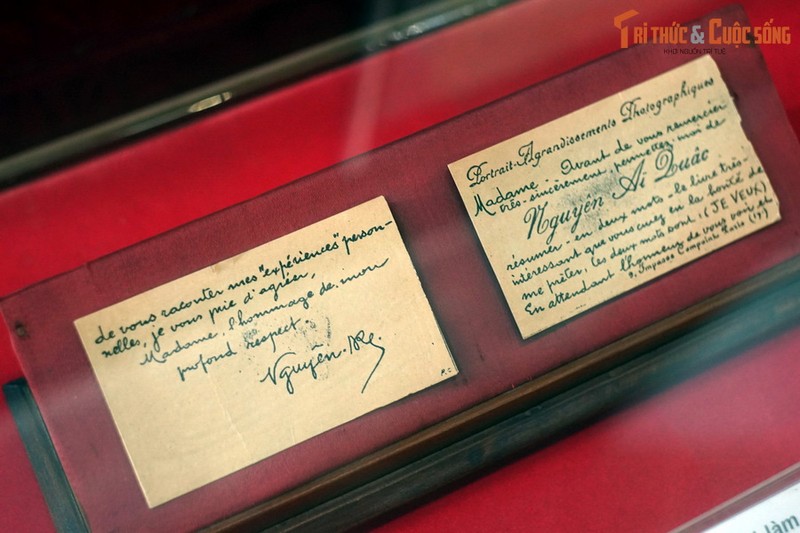 TRI THỨC & CUỘC SỐNG
KHƠI NGUỒN TRI TUỆ
Portrait-Agrandissements Photographiques
Madame. Avant de vous remercier
très-sincèrement, permettez-moi de
Nguyên Aï Quâc
résumer - en deux mots - le livre très-
intéressant que vous aviez eu la bonté de
me prêter. Les deux mots sont: (JE VEUX)
En attendant l'honneur de vous voir et
9, Impasse Compoint Paris (17)
de vous raconter mes "expériences" person-
nelles, je vous prie d'agréer,
Madame, l'hommage de mon
profond respect.
Nguyên.
làm